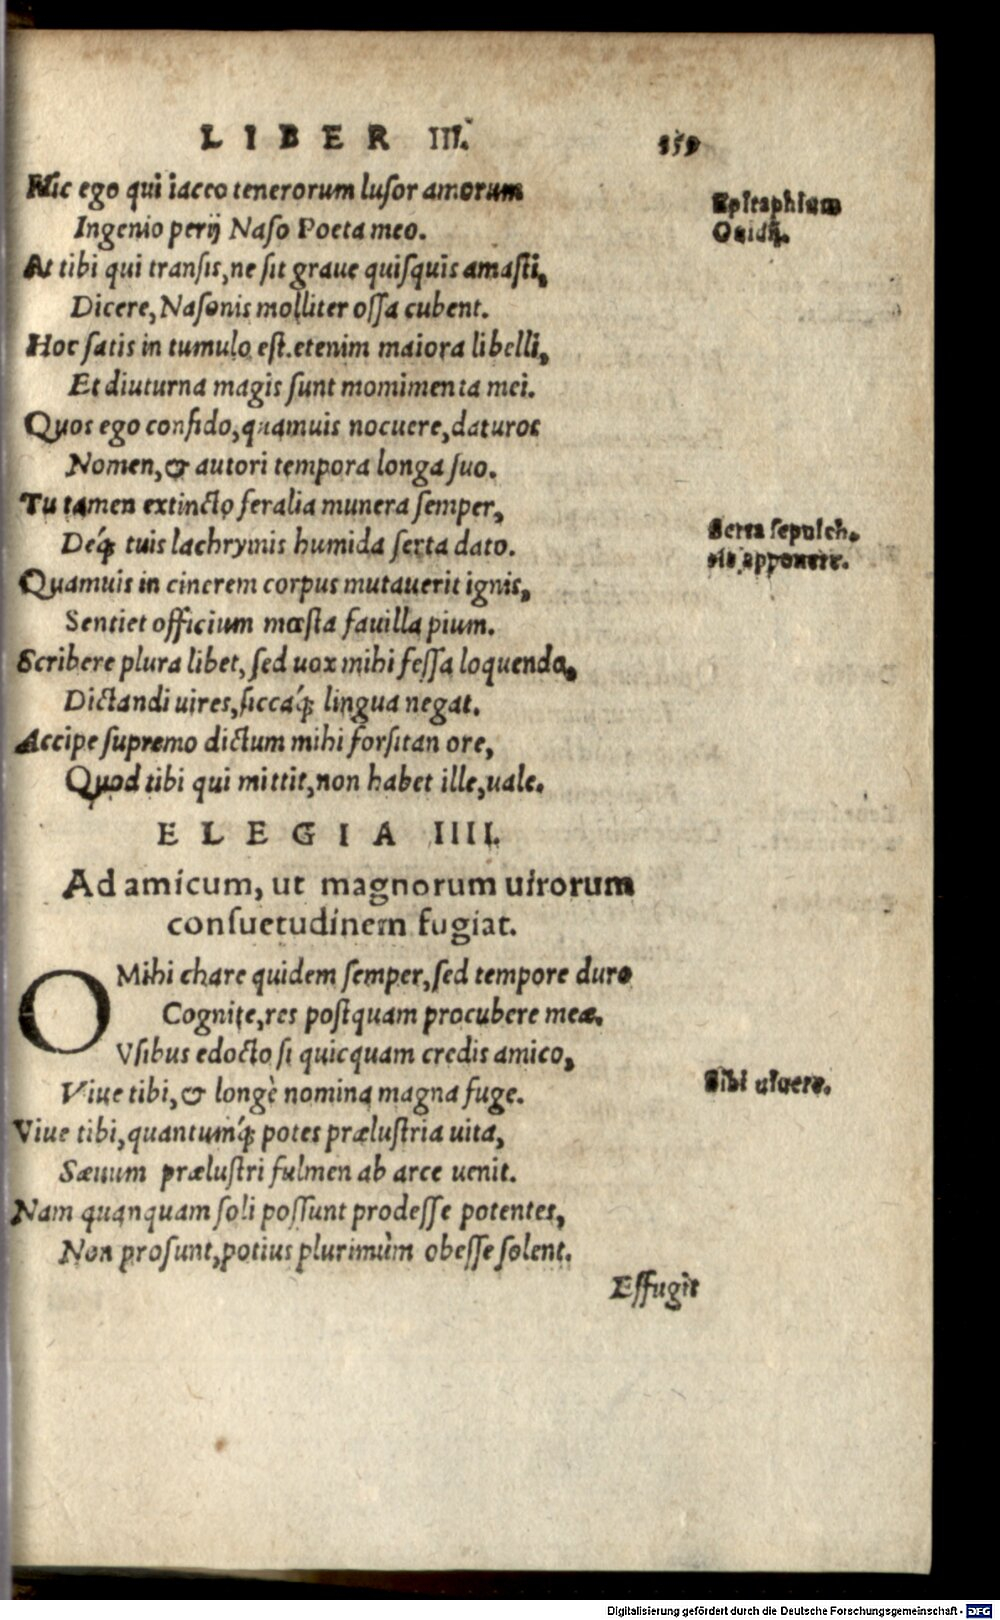 LIBER III. 159
Hic ego qui iaceo tenerorum luſor amorum
Ingenio perij Naſo Poeta meo.
Epitaphium
Ouidij.
At tibi qui tranſis, ne ſit graue quiſquis amaſti,
Dicere, Naſonis molliter oſſa cubent.
Hoc ſatis in tumulo eſt. etenim maiora libelli,
Et diuturna magis ſunt momimenta mei.
Quos ego confido, quamuis nocuere, daturos
Nomen, & autori tempora longa ſuo.
Tu tamen extincto feralia munera ſemper,
Deq́; tuis lachrymis humida ſerta dato.
Serta ſepulch-
ris apponere.
Quamuis in cinerem corpus mutauerit ignis,
Sentiet officium mœſta fauilla pium.
Scribere plura libet, ſed uox mihi feſſa loquendo,
Dictandi uires, ſiccaq́; lingua negat.
Accipe ſupremo dictum mihi forſitan ore,
Quod tibi qui mittit, non habet ille, uale.
ELEGIA IIII.
Ad amicum, ut magnorum uirorum
conſuetudinem fugiat.
O Mihi chare quidem ſemper, ſed tempore duro
Cognite, res poſtquam procubere meæ.
Vſibus edocto ſi quicquam credis amico,
Viue tibi, & longè nomina magna fuge.
Sibi uiuere.
Viue tibi, quantumq́; potes præluſtria uita,
Sæuum præluſtri fulmen ab arce uenit.
Nam quanquam ſoli poſſunt prodeſſe potentes,
Non proſunt, potius plurimùm obeſſe ſolent.
Effugit
Digitalisierung gefördert durch die Deutsche Forschungsgemeinschaft - DFG